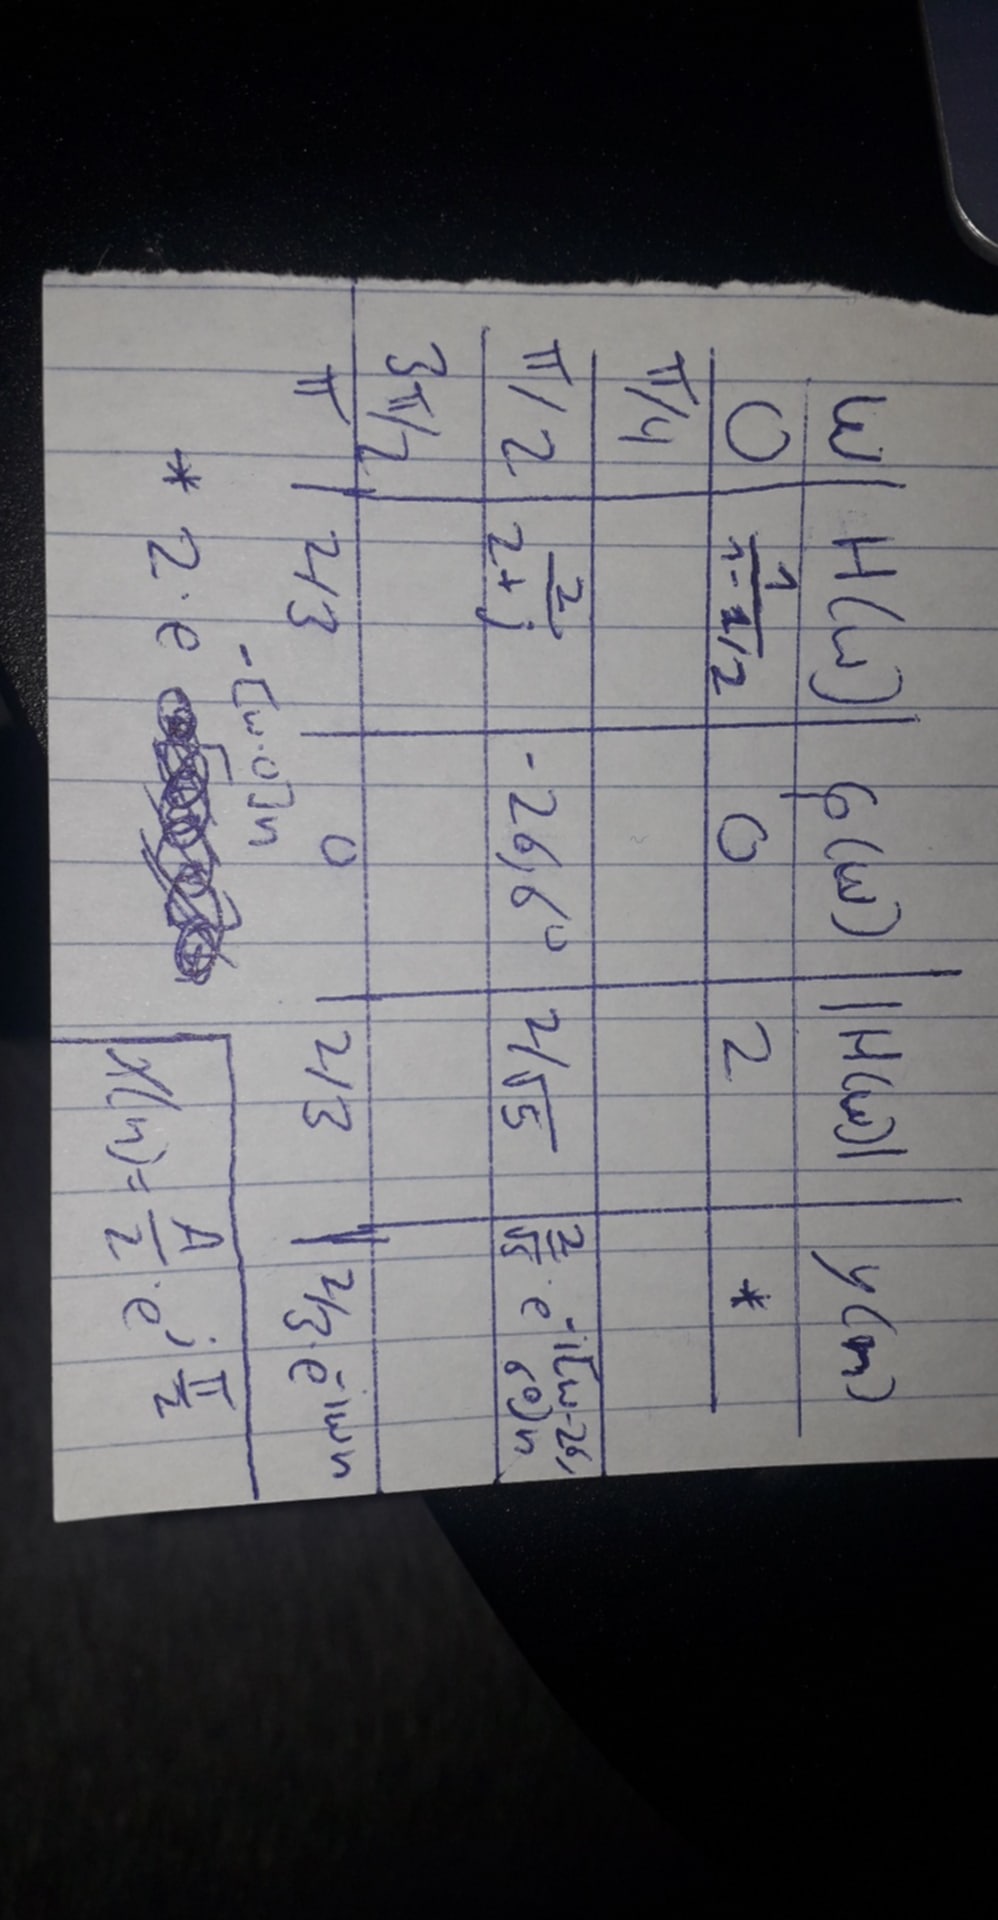 ω | H(ω) | φ(ω) | |H(ω)| | y(n)
0 | 1/(1-1/2) | 0 | 2 | *
π/4
π/2 | 2/(2+j) | -26,6° | 2/√5 | 2/√5 · e^-i[ω-26,6°)n
3π/2
π | 2/3 | 0 | 2/3 | 2/3 · e^-iωn
* 2 · e^-[ω·0]n
x(n) = A/2 · e^j π/2